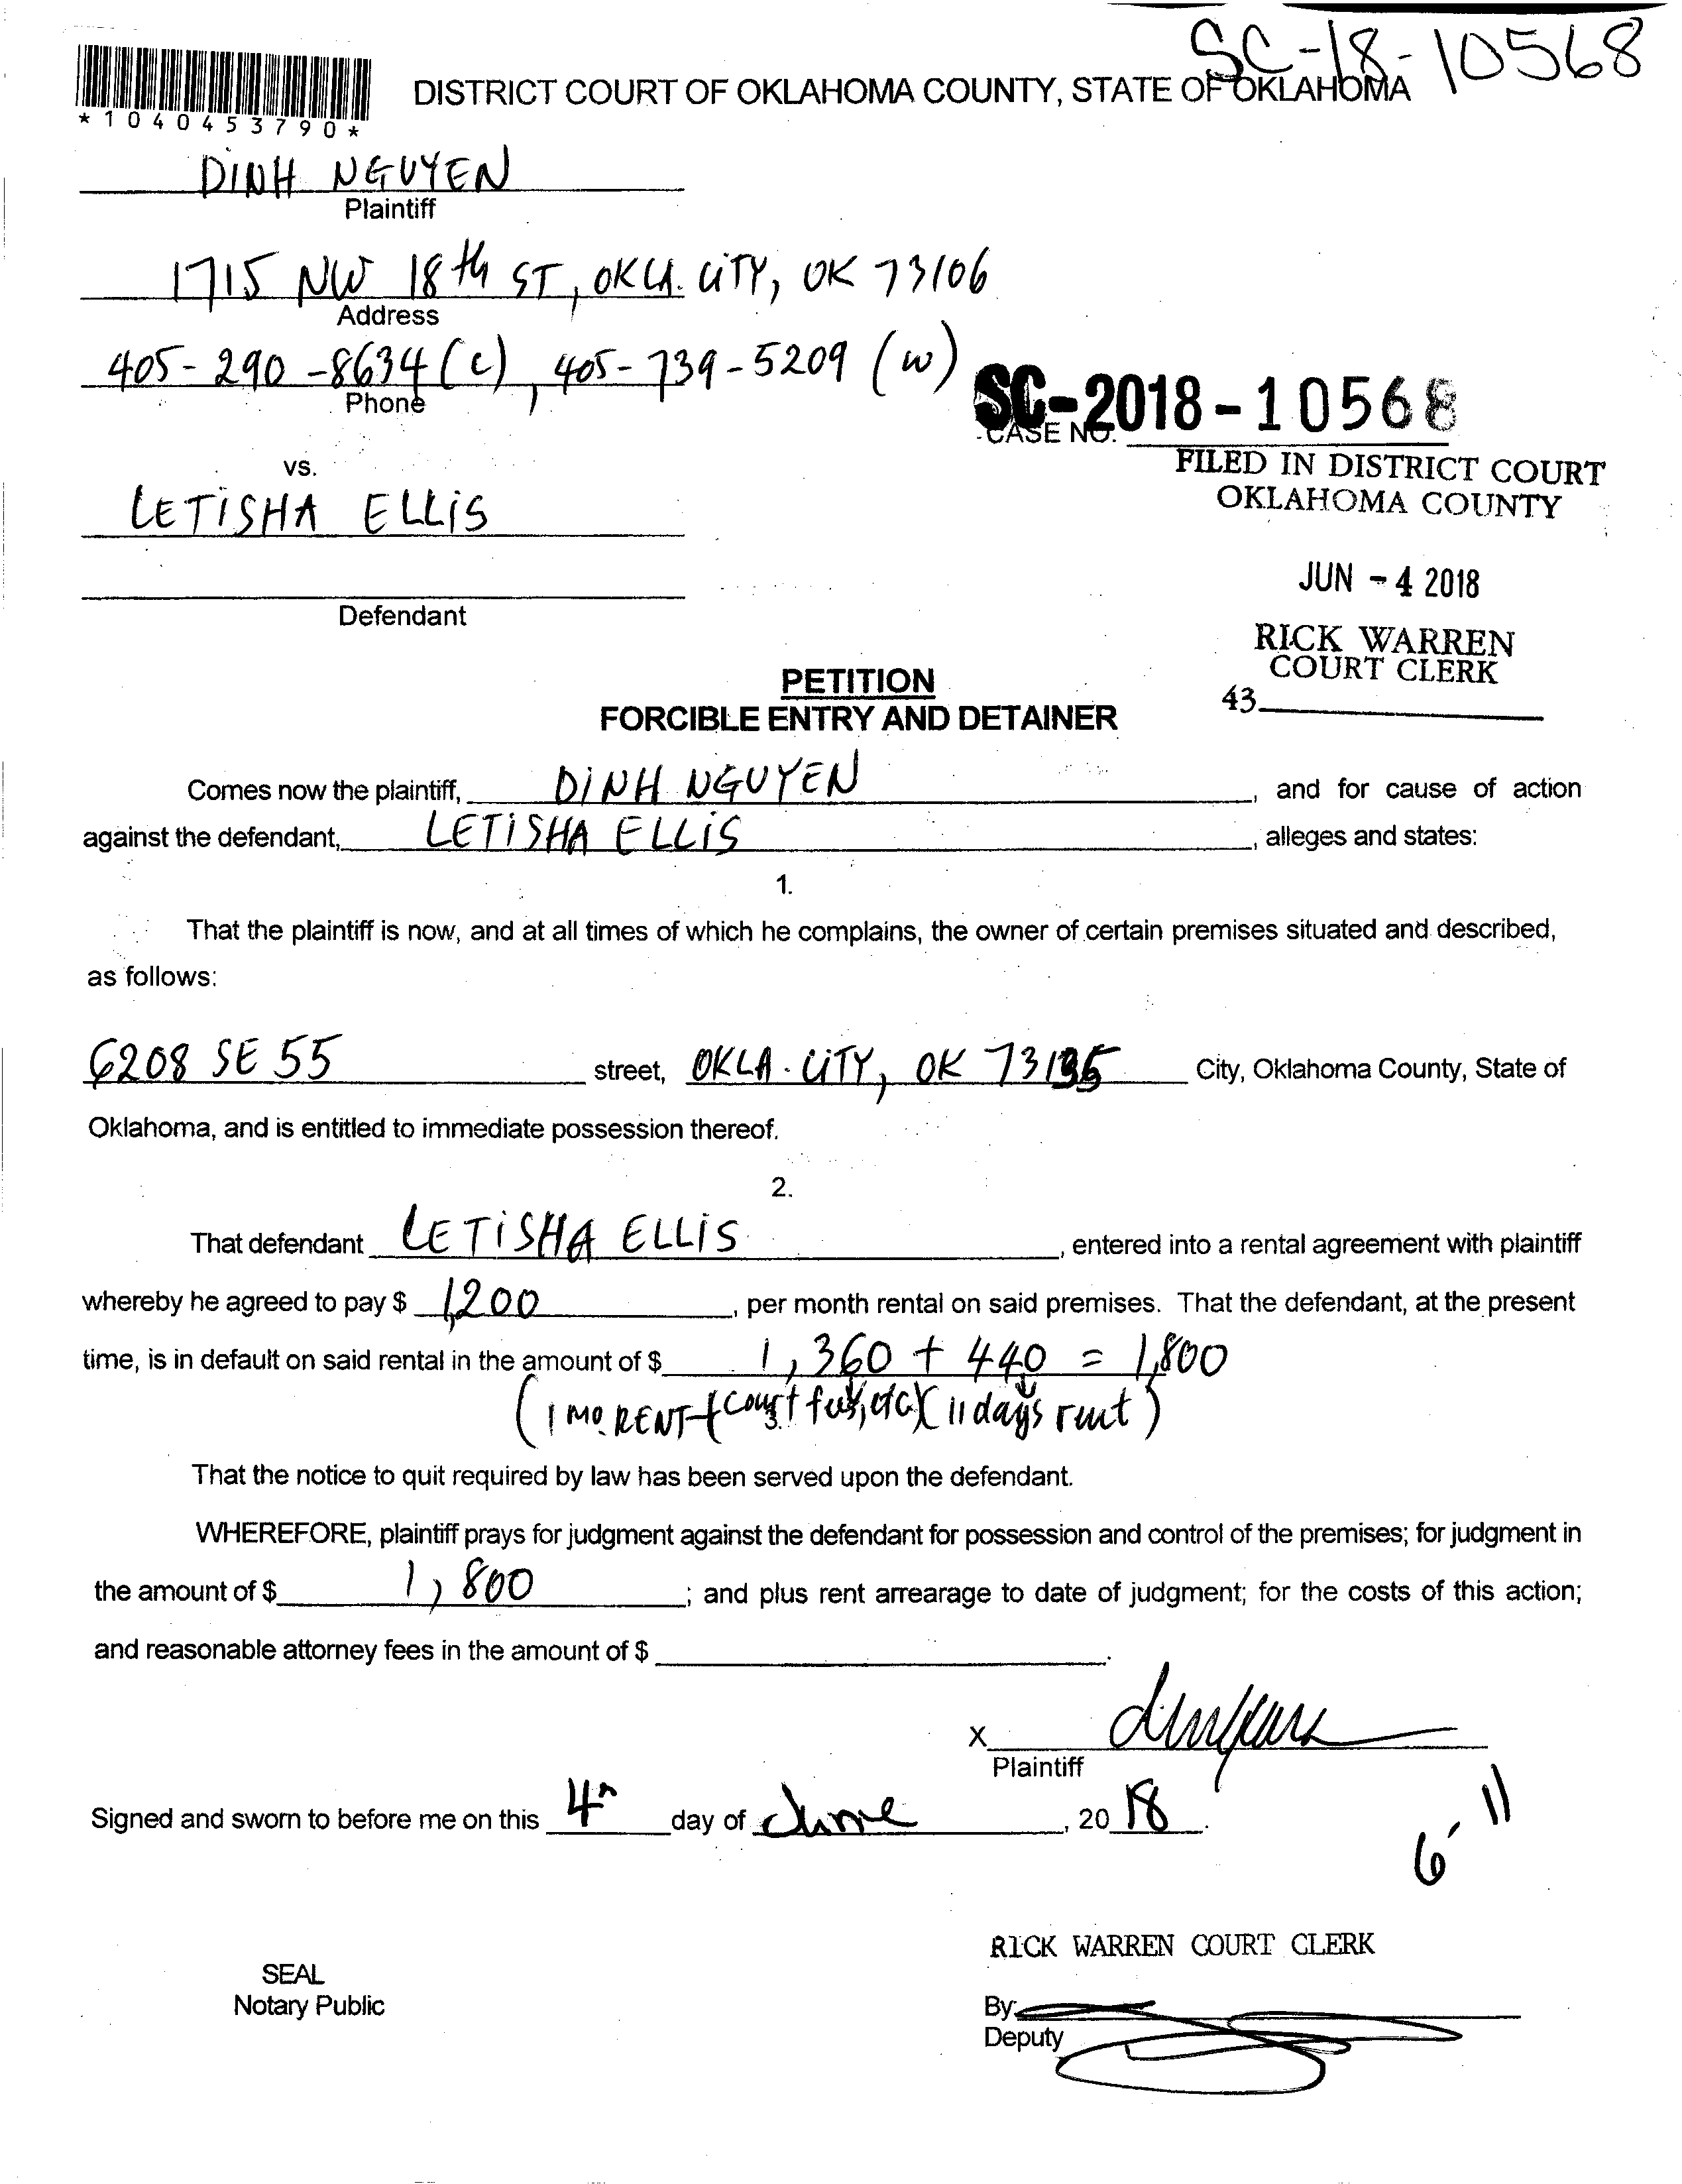 SC-18-10568
*1040453790*
DISTRICT COURT OF OKLAHOMA COUNTY, STATE OF OKLAHOMA
DINH NGUYEN
Plaintiff
1715 NW 18th ST, OKLA. CITY, OK 73106
Address
405-290-8634 (c), 405-739-5209 (w)
Phone
SC-2018-10568
CASE NO.
FILED IN DISTRICT COURT
OKLAHOMA COUNTY
vs.
LETISHA ELLIS
JUN - 4 2018
Defendant
RICK WARREN
COURT CLERK
43
PETITION
FORCIBLE ENTRY AND DETAINER
Comes now the plaintiff, DINH NGUYEN, and for cause of action
against the defendant, LETISHA ELLIS, alleges and states:
1.
That the plaintiff is now, and at all times of which he complains, the owner of certain premises situated and described,
as follows:
6208 SE 55 street, OKLA. CITY, OK 73135 City, Oklahoma County, State of
Oklahoma, and is entitled to immediate possession thereof.
2.
That defendant LETISHA ELLIS, entered into a rental agreement with plaintiff
whereby he agreed to pay $ 1,200, per month rental on said premises. That the defendant, at the present
time, is in default on said rental in the amount of $ 1,360 + 440 = 1,800
(1 MO. RENT + court fees, etc)(11 days rent)
That the notice to quit required by law has been served upon the defendant.
WHEREFORE, plaintiff prays for judgment against the defendant for possession and control of the premises; for judgment in
the amount of $ 1,800; and plus rent arrearage to date of judgment; for the costs of this action;
and reasonable attorney fees in the amount of $ .
X
Plaintiff
Signed and sworn to before me on this 4th day of June, 2018.
6-11
RICK WARREN COURT CLERK
SEAL
Notary Public
By:
Deputy